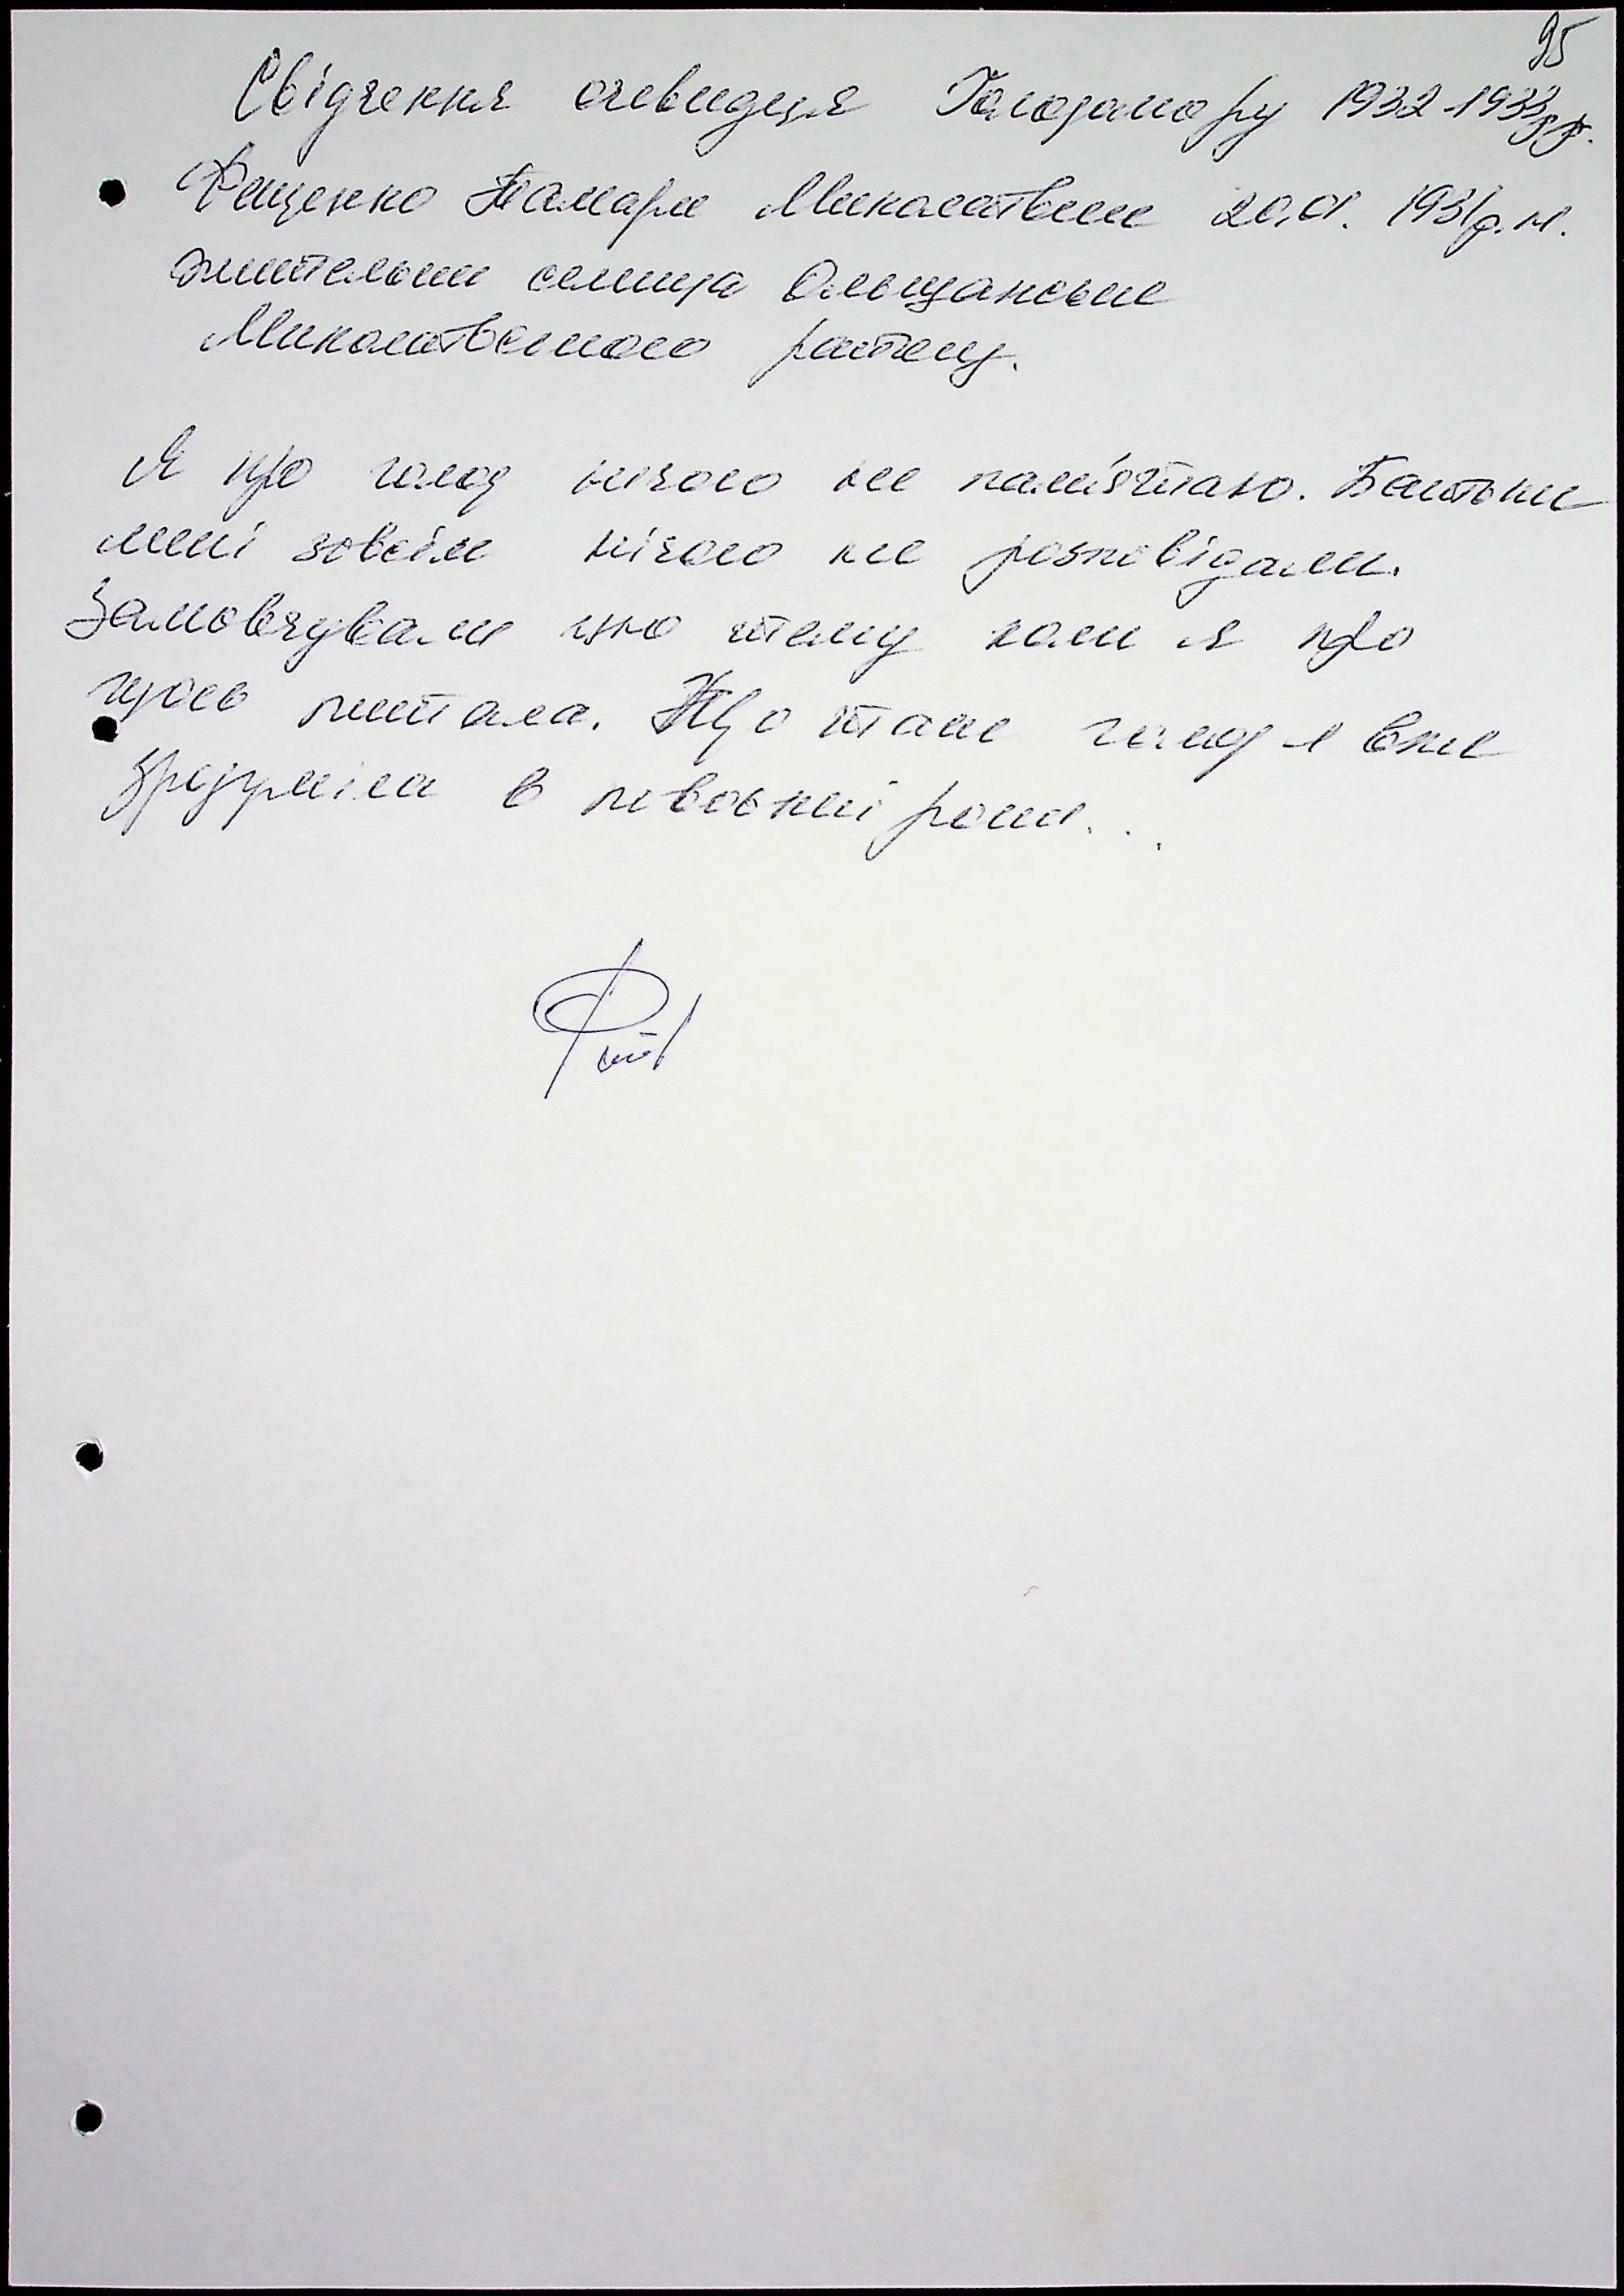 95
Свідчення очевидця Голодомору 1932-1933рр.
Фещенко Тамари Миколаївни 20.01.1931р.н.
жительки селища Ольшанське
Миколаївського району.
Я про голод нічого не пам'ятаю. Батьки
мені зовсім нічого не розповідали.
Замовчували цю тему коли я про
щось питала. Що таке голод я вже
зрозуміла в повоєнні роки...